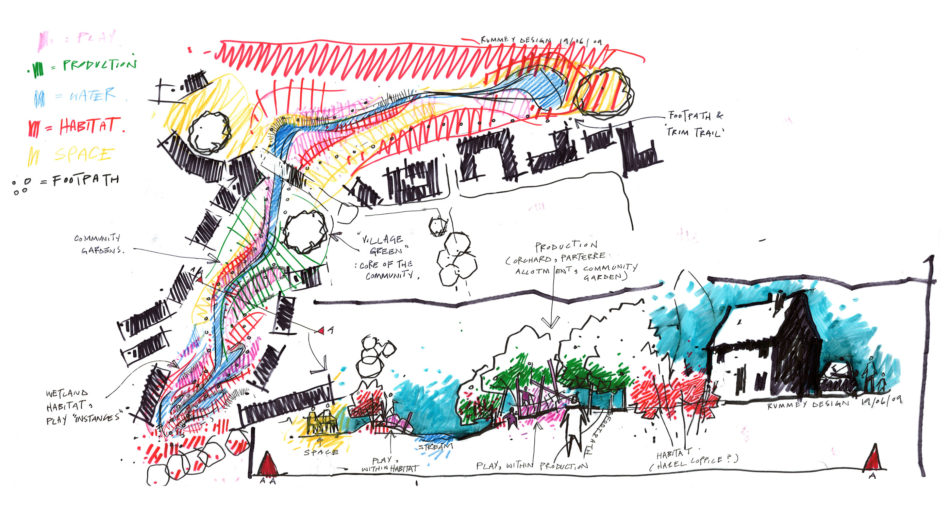 = PLAY.
= PRODUCTION
= WATER.
= HABITAT.
SPACE
= FOOTPATH
RUMMEY DESIGN 19/06/09
FOOTPATH &
'TRIM TRAIL'
COMMUNITY
GARDENS.
"VILLAGE
GREEN"
: CORE OF THE
COMMUNITY.
PRODUCTION
(ORCHARD, PARTERRE
ALLOTMENT, COMMUNITY
GARDEN)
A
WETLAND
HABITAT,
PLAY "INSTANCES"
RUMMEY DESIGN 19/06/09
SPACE
PLAY,
WITHIN HABITAT
STREAM
PLAY, WITHIN PRODUCTION
HABITAT.
(HAZEL COPPICE?)
AA
A